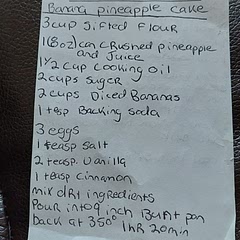 Banana pineapple cake
3 cup sifted flour
1 (8oz) can crushed pineapple
and Juice
1 1/2 cup cooking oil
2 cups suger
2 cups Diced Bananas
1 tesp Backing Soda
3 eggs
1 teasp salt
2 teasp. vanilla
1 teasp cinnamon
mix dry ingredients
Pour into 9 inch Bundt pan
back at 350° 1 hR 20min